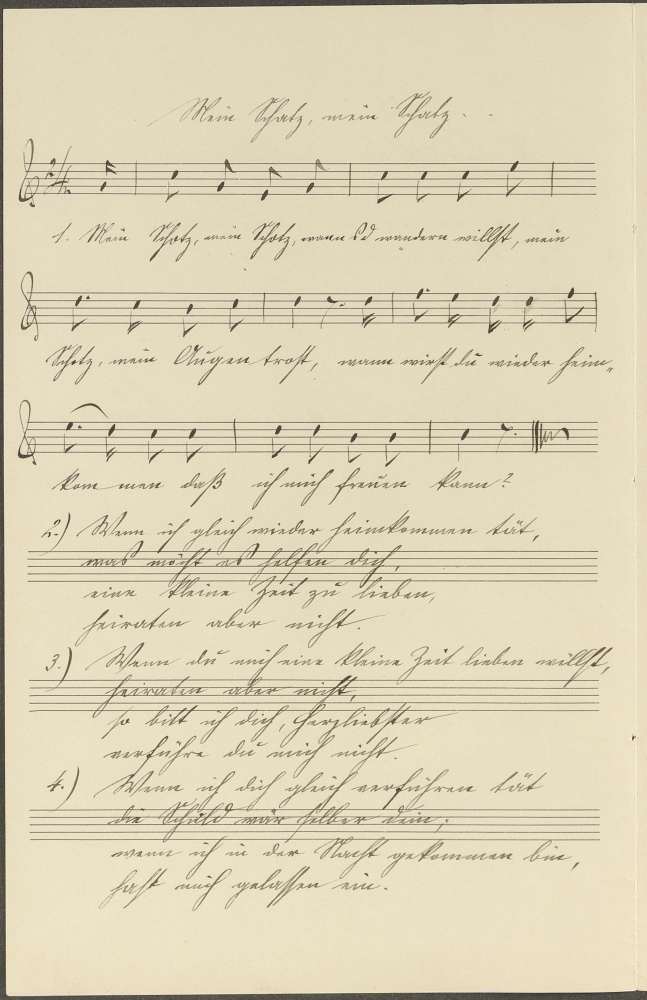 Mein Schatz, mein Schatz. .
2/4
1. Mein Schatz, mein Schatz, wann du wandern willst, mein
Schatz, mein Augentrost, wann wirst du wieder heim„
kom men daß ich mich freuen kann?
2.) Wenn ich gleich wieder heimkommen tät,
was möcht es helfen dich,
eine kleine Zeit zu lieben,
heiraten aber nicht.
3.) Wenn du mich eine kleine Zeit lieben willst,
heiraten aber nicht,
so bitt ich dich, Herzliebster
verführe du mich nicht.
4.) Wenn ich dich gleich verführen tät
die Schuld wär selber dein;
wenn ich in der Nacht gekommen bin,
hast mich gelassen ein.